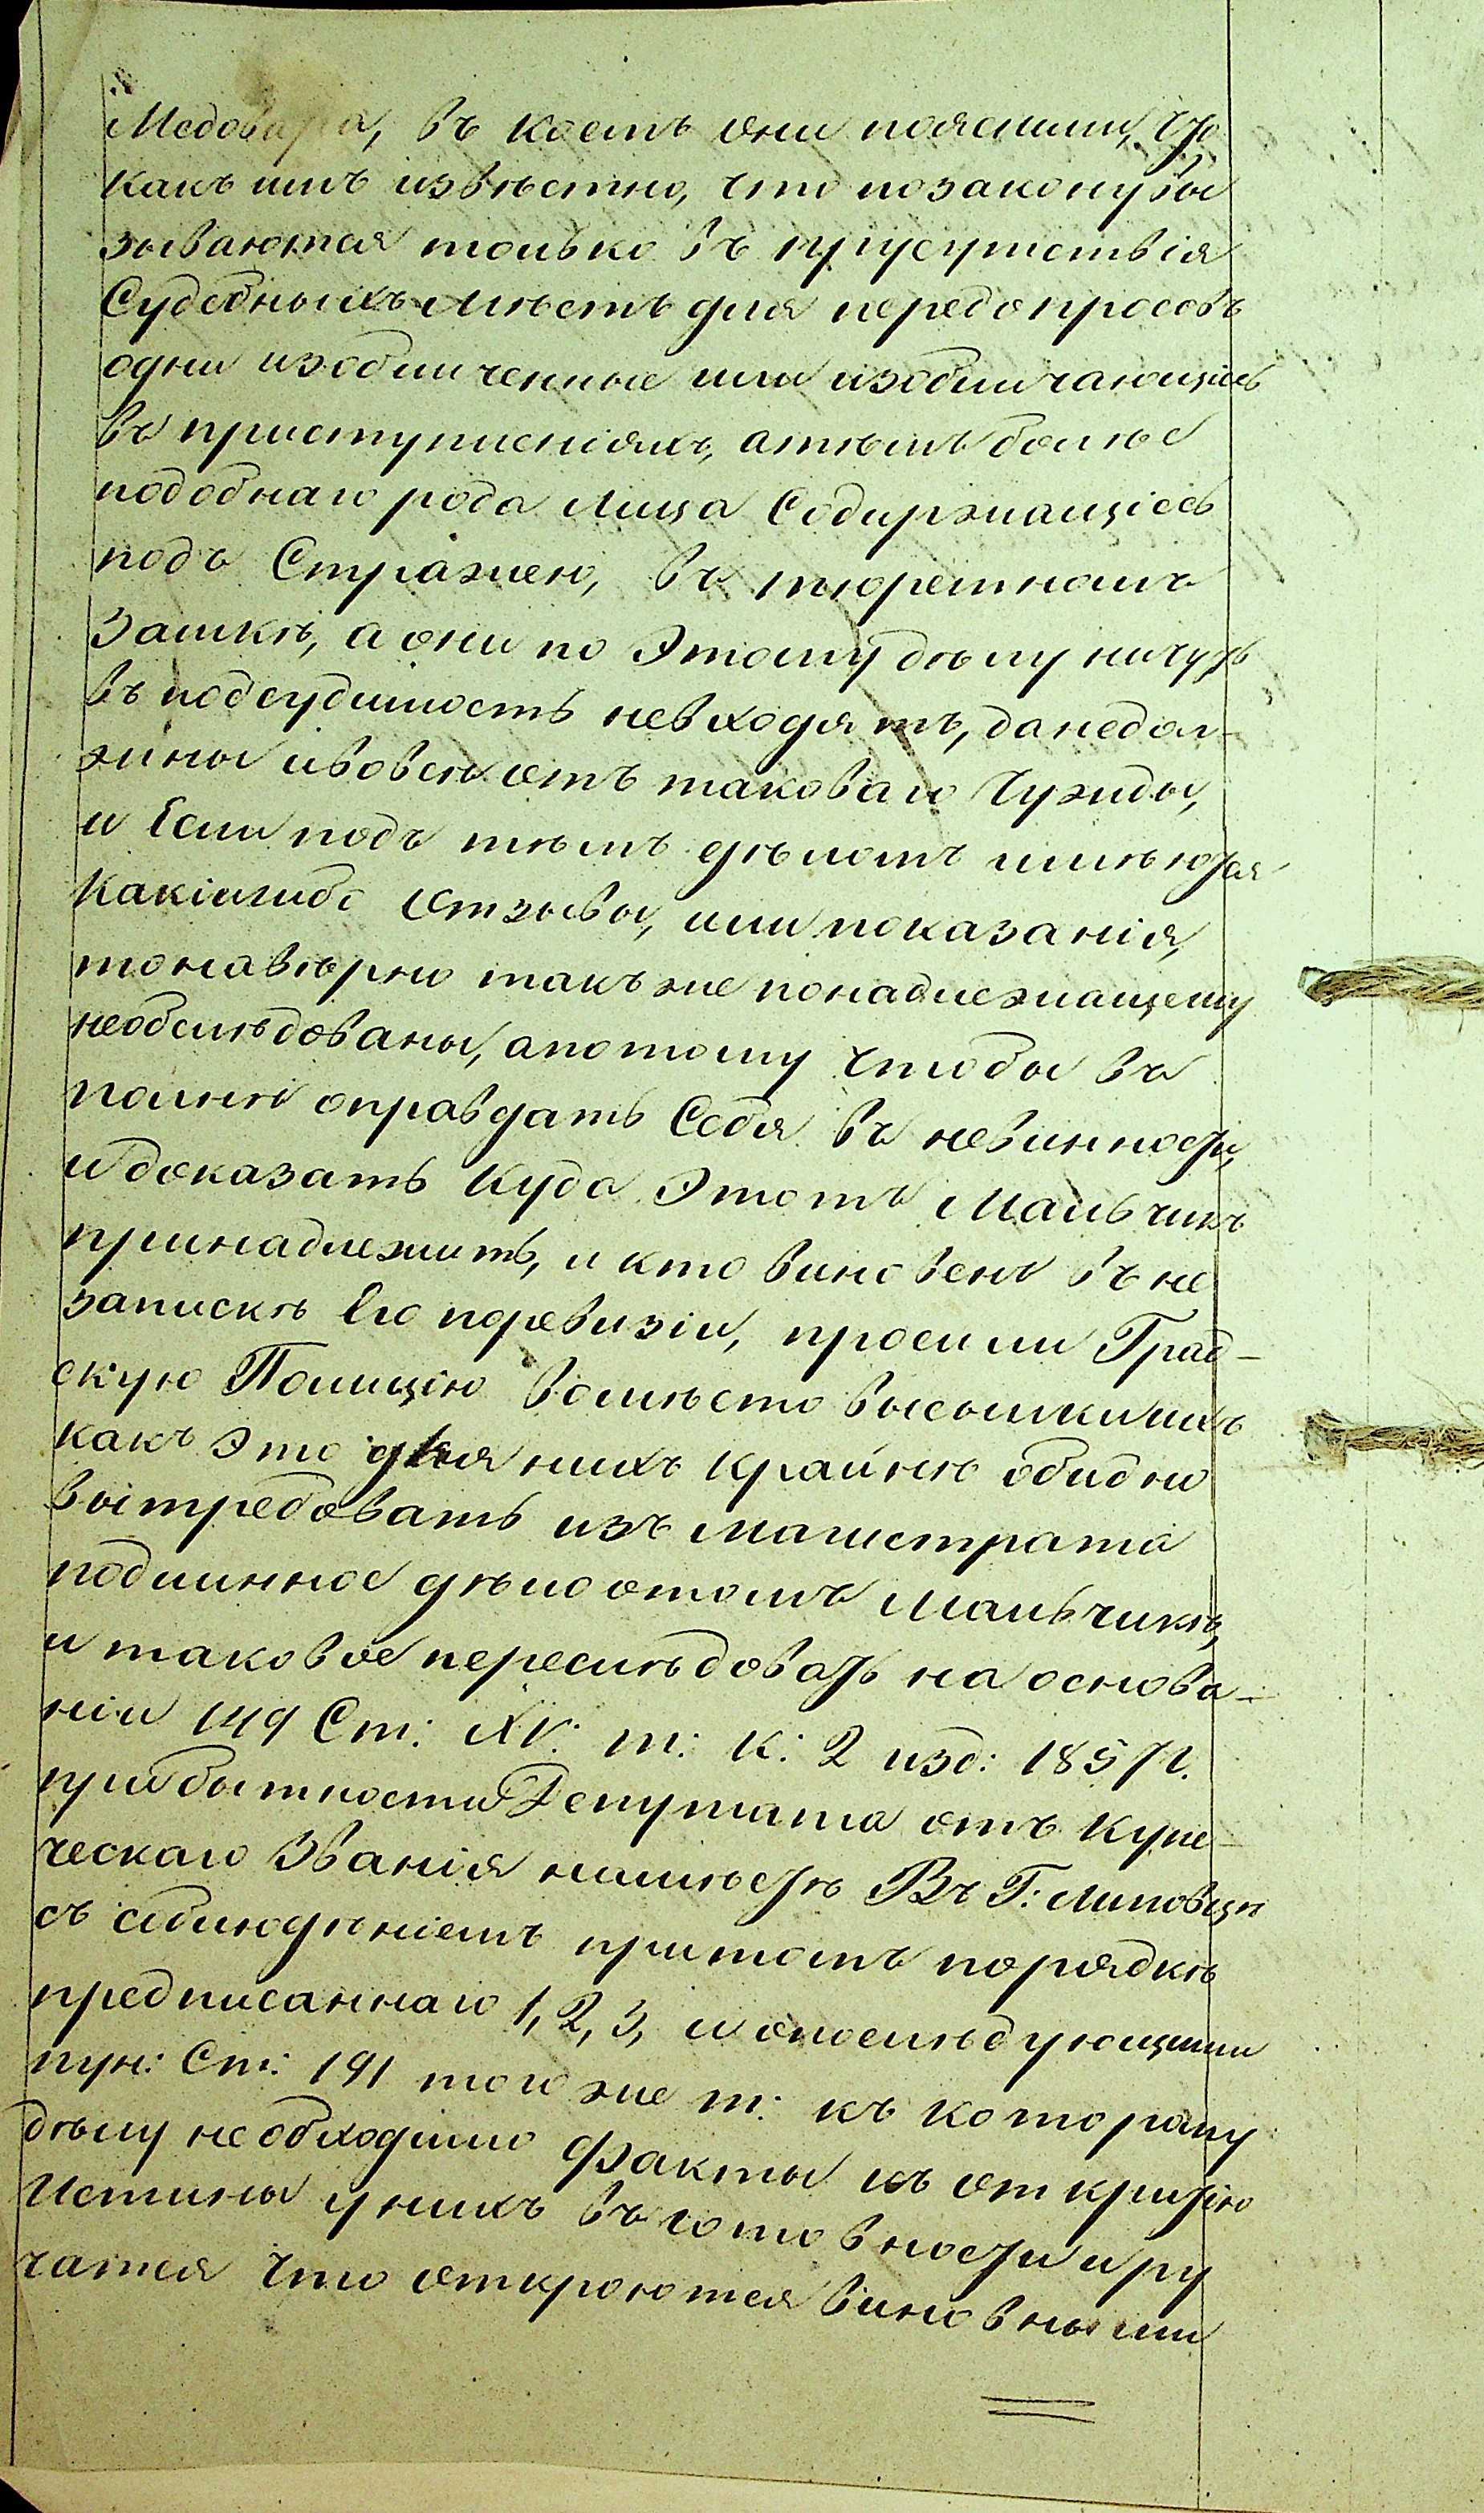 Медовара, въ коемъ они пояснили, что
какъ имъ извѣстно, что позакону вы
зываются только въ присутствія
Судебныхъ мѣстъ для передопросовъ
одни изобличенные или изобличающіесь
въ приступленіяхъ, атѣмъ болѣе
подобнаго рода лица Содержащіесь
подъ Стражею, въ тюремномъ
замкѣ, а они по Этому дѣлу ничуть
въ подсудимость невходятъ, данедол-
жны ивовсе отъ таковаго Чужды,
и Если подъ тѣмъ дѣломъ имѣются
Какіилибо Отзывы, или показанія,
тонавѣрно такъже понадлежащему
необслѣдованы, апотому чтобы въ
полнѣ оправдать Себя въ невинности,
идоказать Куда Этотъ Мальчикъ
принадлежитъ, и кто виновенъ въ не
запискѣ Его поревизіи, просили Град-
скую Полицію вомѣсто высылки ихъ
какъ Это для нихъ крайнѣ обидно
вытребовать изъ магистрата
подлинное дѣло отомъ мальчикѣ,
и таковое переслѣдовать на основа-
ніи 149 Ст: XV: т: к: 2 изд: 1857 г.
прибытности Депутата отъ купе-
ческаго Званія
Въ Г: Липовцѣ
съ соблюдѣніемъ притомъ порядкѣ
предписаннаго 1, 2, 3, и опослѣдующими
пун: Ст: 191 тогоже т: къ которому
дѣлу необходимо Факты къ открытію
Истины унихъ въ готовности иру
чатся Что откроются виновными